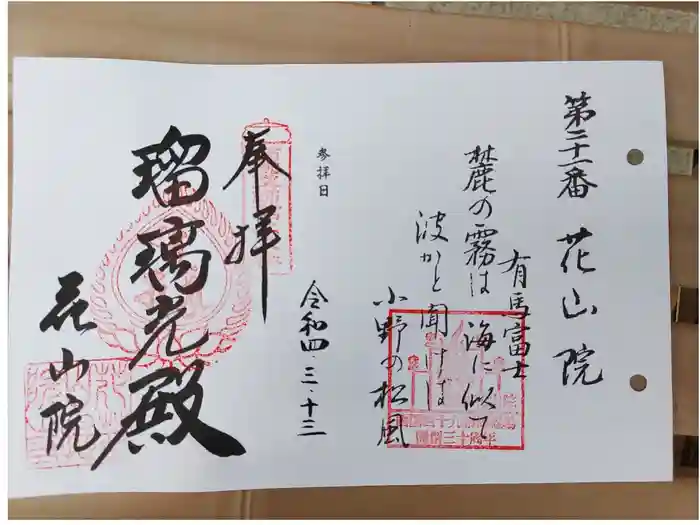 第二十一番 花山院
有馬富士
麓の霧は 海に似て
波かと聞けば
小野の松風
参拝日
令和四.三.十三
奉拝
瑠璃光殿
花山院
開創三十周年